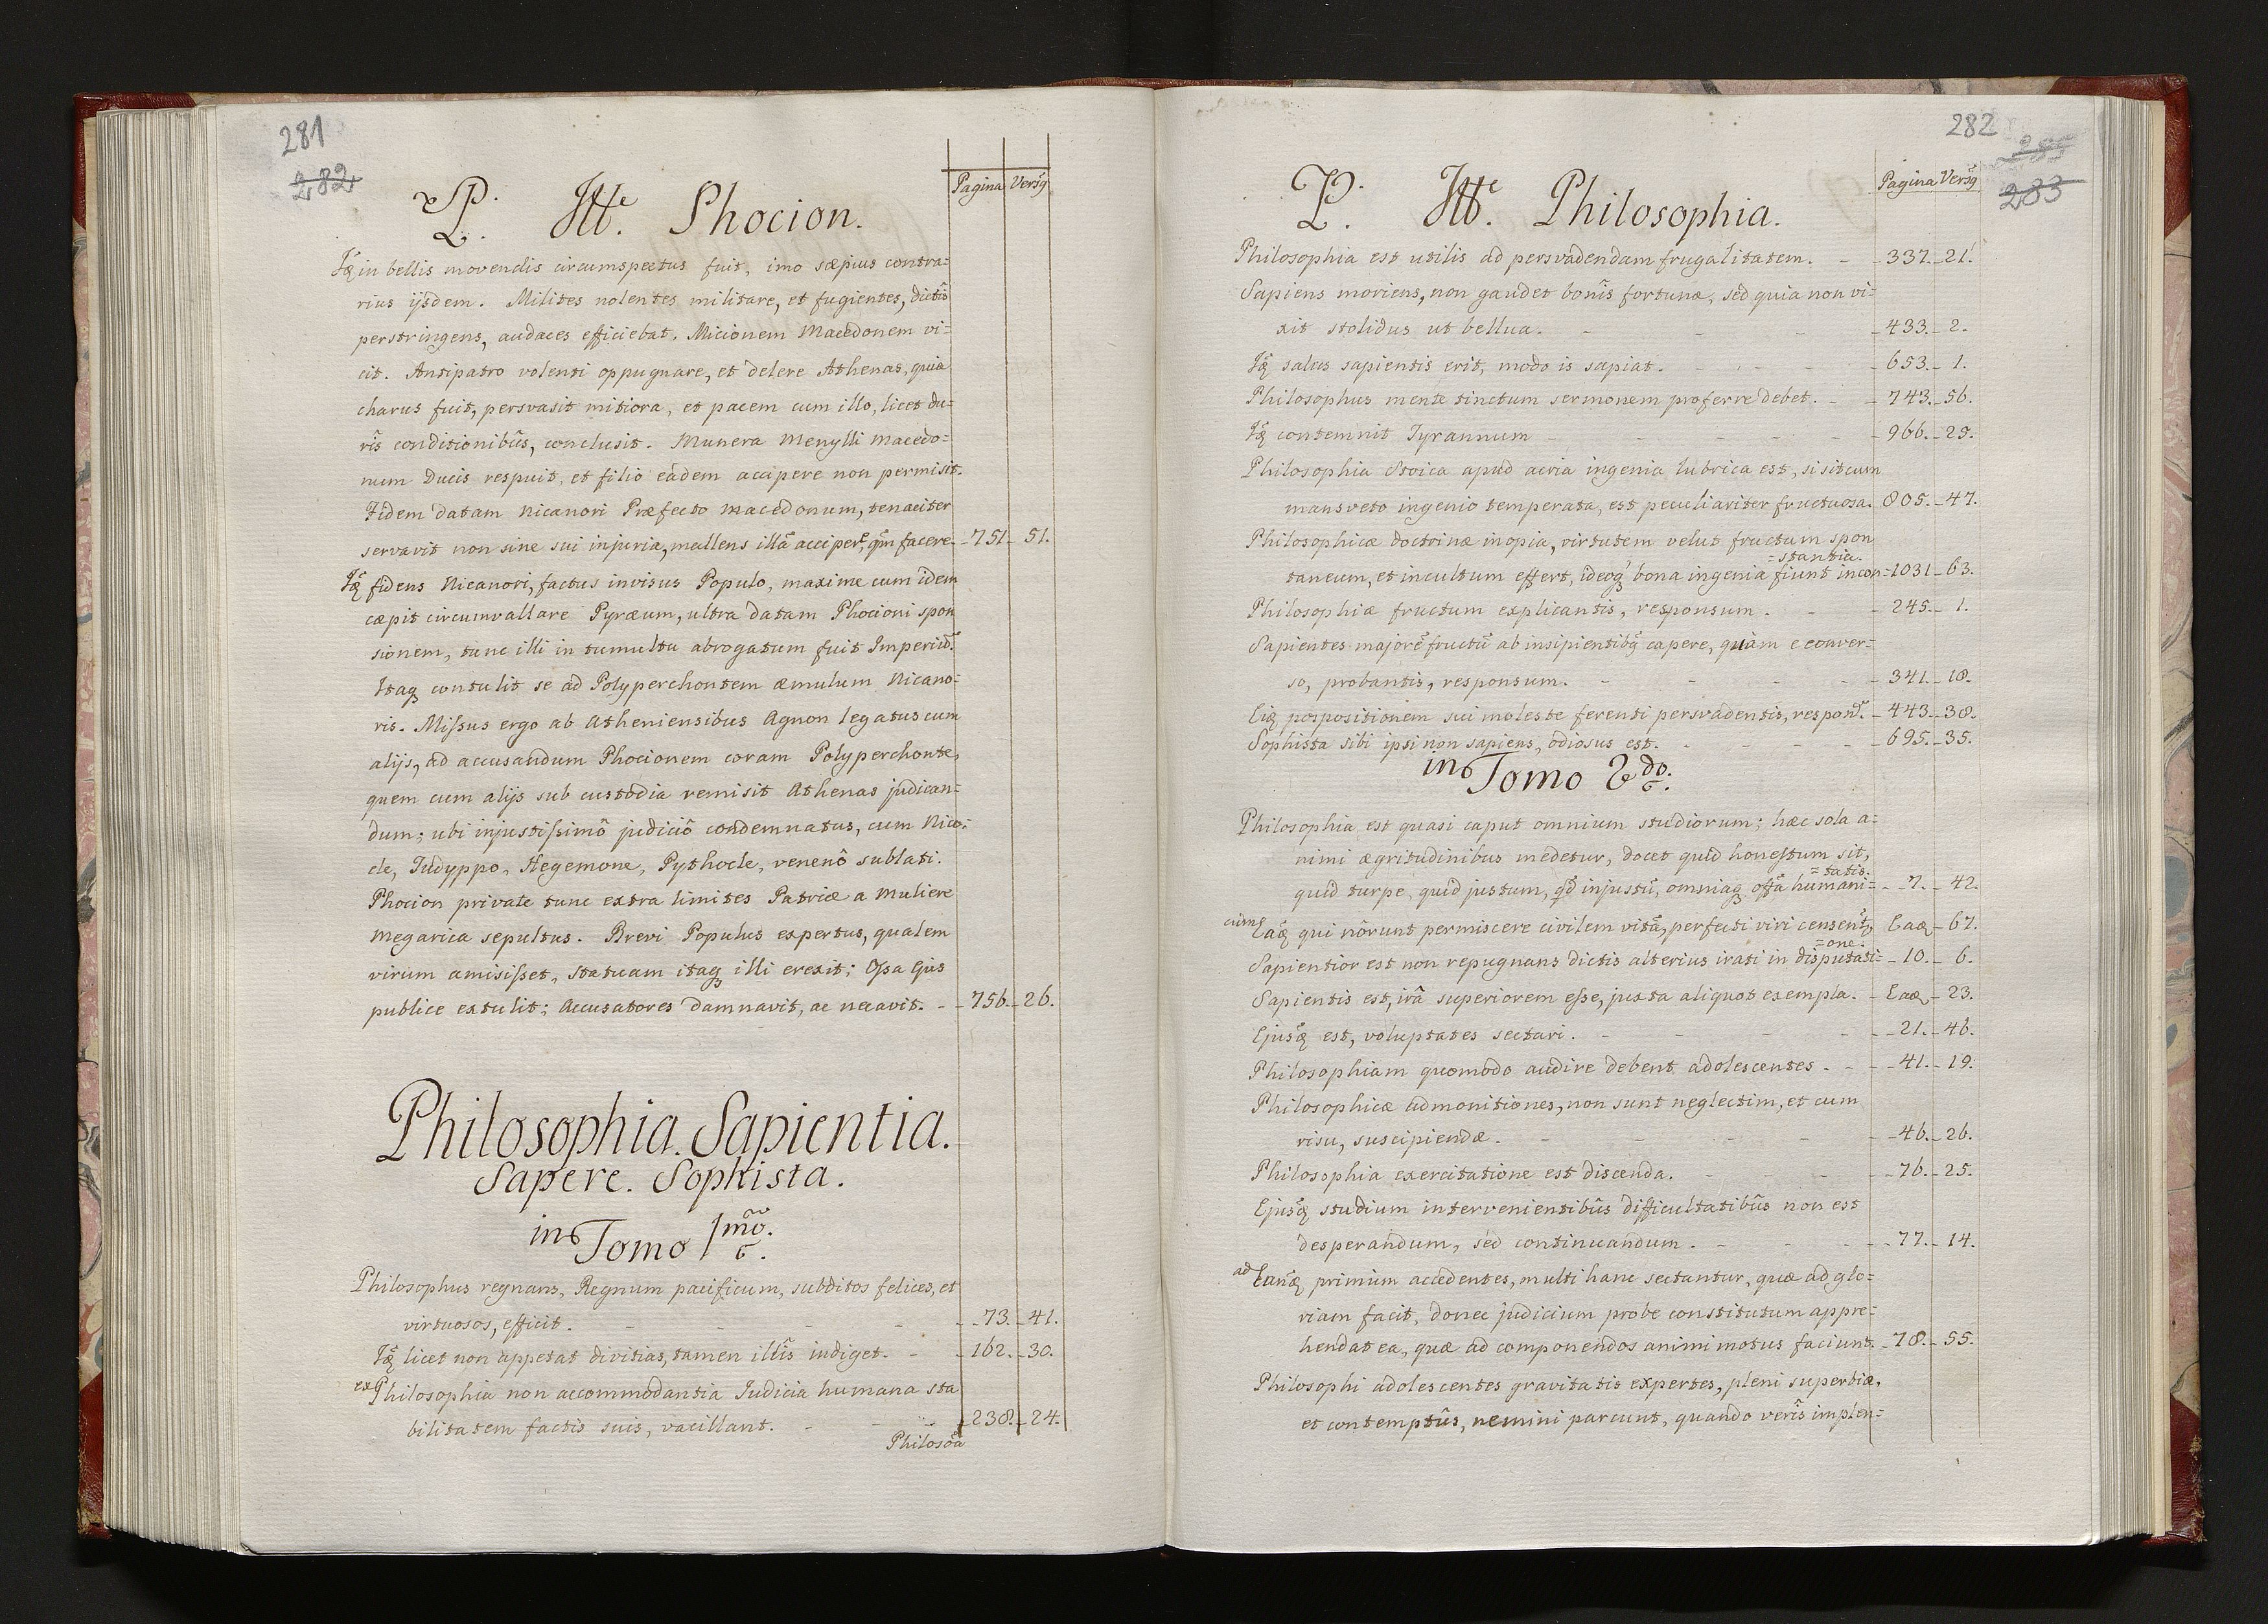 281
282
Pagina Versq
P. Itte. Phocion.
Idq in bellis movendis circumspectus fuit, imo sæpius contra=
rius ijsdem. Milites nolentes militare, et fugientes, dictis
perstringens, audaces efficiebat. Micionem Macedonem vi=
cit. Antipatro volenti oppugnare, et delere Athenas, quia
charus fuit, persvasit mitiora, et pacem cum illo, licet du=
ris conditionibus, conclusit. Munera Menylli Macedo=
num Ducis respuit, et filio eadem accipere non permisit.
Fidem datam Nicanori Præfecto Macedonum, tenaciter
servavit non sine sui injuria, mallens illã accipere, qm̃ facere. - 751 - 51.
Idq fidens Nicanori, factus invisus Populo, maxime cum idem
cæpit circumvallare Pyræum, ultra datam Phocioni spon
sionem, tunc illi in tumultu abrogatum fuit Imperiũ.
Itaq contulit se ad Polyperchontem æmulum Nicano=
ris. Missus ergo ab Atheniensibus Agnon legatus cum
alijs, ad accusandum Phocionem coram Polyperchonte,
quem cum alijs sub custodia remisit Athenas judican=
dum; ubi injustissimô judiciô condemnatus, cum Nico=
cle, Tudyppo, Hegemone, Pythocle, venenô sublati.
Phocion private tunc extra limites Patriæ a Muliere
Megarica sepultus. Brevi Populus expertus, qualem
virum amisisset, statuam itaq illi erexit; Ossa Ejus
publice extulit; Accusatores damnavit, ac necavit. - - 756. - 26.
Philosophia. Sapientia.
Sapere. Sophista.
in Tomo 1mo.
Philosophus regnans, Regnum pacificum, subditos felices, et
virtuosos, efficit. - - - - - 73. - 41.
Idq licet non appetat divitias, tamen illis indiget. - - 162. - 30.
ex Philosophia non accommodantia Iudicia humana sta
bilitatem factis suis, vacillant. - - - - 238. - 24.
Philosõa
282
283
Pagina Versq
P. Itte. Philosophia.
Philosophia est utilis ad persvadendam frugalitatem. - - 337. - 21.
Sapiens moriens, non gaudet bonis fortunæ, sed quia non vi=
xit stolidus ut bellua. - - - - 433. - 2.
Idq salus sapientis erit, modo is sapiat. - - - - 653. - 1.
Philosophus mente tinctum sermonem proferre debet. - - 743. - 56.
Idq contemnit Tyrannum - - - - - 966. - 25.
Philosophia Stoica apud acria ingenia lubrica est, si sit cum
mansveto ingenio temperata, est peculiariter fructuosa. 805. - 47.
Philosophicæ doctrinæ inopia, virtutem velut fructum spon
=stantia.
taneum, et incultum effert, ideoq bona ingenia fiunt incon= 1031 - 63.
Philosophiæ fructum explicantis, responsum. - - - 245. - 1.
Sapientes majorẽ fructũ ab insipientibq capere, quàm e conver=
so, probantis, responsum. - - - - 341. - 18.
Eiq pospositionem sui moleste ferenti persvadentis, respons. - 443. - 38.
Sophista sibi ipsi non sapiens, odiosus est. - - - - 695. - 35.
in Tomo 2do.
Philosophia est quasi caput omnium studiorum; hæc sola a=
nimi ægritudinibus medetur, docet quid honestum sit,
=tatis.
quid turpe, quid justum, qd injustũ, omniaq offã humani= - 7. - 42.
cum Eaq qui nôrunt permiscere civilem vitã, perfecti viri censent, Eaq - 67.
=one.
Sapientior est non repugnans dictis alterius irati in disputati= - 10. - 6.
Sapientis est, irâ superiorem esse, juxta aliquot exempla. - Eaq - 23.
Ejusq est, voluptates sectari. - - - - 21. - 46.
Philosophiam quomodo audire debent adolescentes. - - - 41. - 19.
Philosophicæ admonitiones, non sunt neglectim, et cum
risu, suscipiendæ. - - - - - 46. - 26.
Philosophia exercitatione est discenda. - - - - 76. - 25.
Ejusq studium intervenientibus difficultatibus non est
desperandum, sed continuandum. - - - - 77. - 14.
ad Eandq primum accedentes, multi hanc sectantur, quæ ad glo=
riam facit, donec judicium probe constitutum appre=
hendat ea, quæ ad componendos animi motus faciunt. - 78. - 55.
Philosophi adolescentes gravitatis expertes, pleni superbiæ,
et contemptûs, nemini parcunt, quando veris implen=